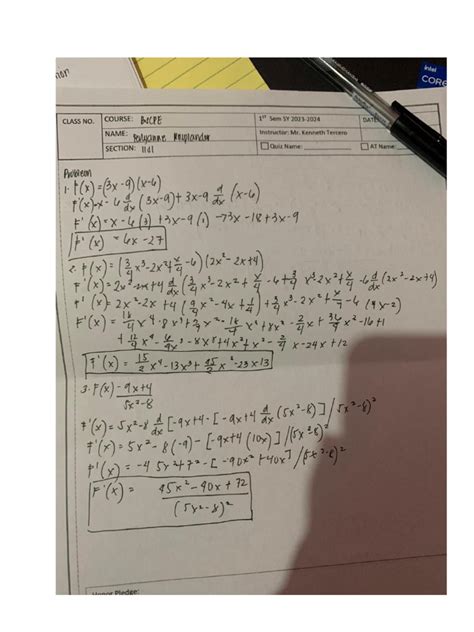 intel
CORE
CLASS NO.
COURSE: BSCPE
1ST Sem SY 2023-2024
DATE:
NAME:
Instructor: Mr. Kenneth Tercero
SECTION: 11d1
Quiz Name:
AT Name:
Problem
1. f(x) = (3x-9)(x-6)
f'(x) = x-6 d/dx (3x-9) + 3x-9 d/dx (x-6)
F'(x) = x-6 (3) + 3x-9 (1) → 3x-18+3x-9
f'(x) = 6x-27
2. f(x) = (3/4 x³-2x²+x/4-6)(2x²-2x+4)
f'(x) = 2x²-2x+4 d/dx (3/4 x³-2x²+x/4-6+3/4 x³-2x²+x/4-6 d/dx (2x²-2x+4)
f'(x) = 2x²-2x+4 (9/4 x²-4x+1/4)+3/4 x³-2x²+x/4-6 (4x-2)
F'(x) = 15/2 x⁴-13x³+45/2 x²-25x+13
3. F(x) -9x+4
5x²-8
F'(x) = 5x²-8 d/dx [-9x+4-[-9x+4 d/dx (5x²-8)]/5x²-8)²
F'(x) = 5x²-8(-9)-[-9x+4(10x)]/(5x²-8)²
F'(x) = -45x²+72-[-90x²+40x]/(5x²-8)²
F'(x) = 45x²-40x+72
(5x²-8)²
Honor Pledge: